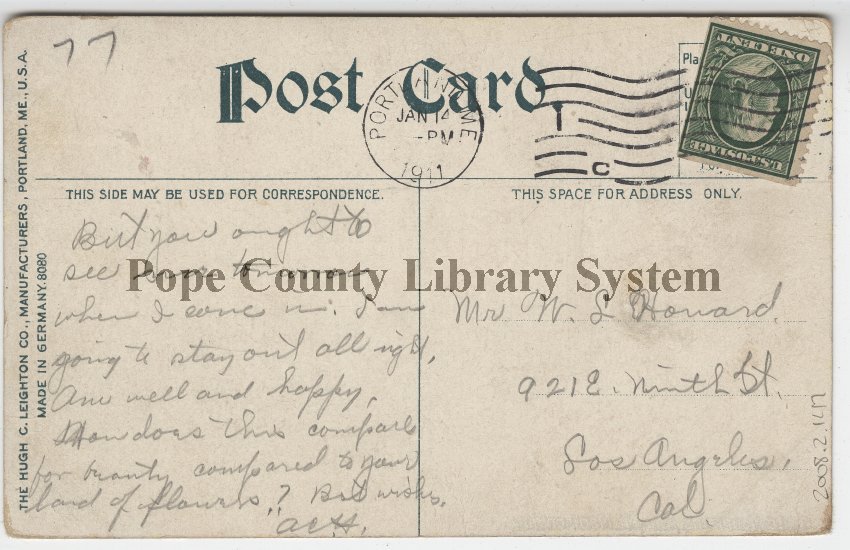 77
Post Card.
PORTLAND, ME
JAN 14
-PM
1911
1
C
Pla
ONE CENT
U.S. POSTAGE
THIS SIDE MAY BE USED FOR CORRESPONDENCE.
THIS SPACE FOR ADDRESS ONLY.
THE HUGH C. LEIGHTON CO., MANUFACTURERS, PORTLAND, ME., U.S.A.
MADE IN GERMANY. 8080
But you ought to
see tomorrow
when I come in. I am
going to stay out all night,
Am well and happy,
How does this compare
for beauty compared to your
land of flowers? Best wishes,
ACH.
Mr W. L Howard.
921 E. Ninth St.
Los Angeles,
Cal.
Pope County Library System
2008.2.1217